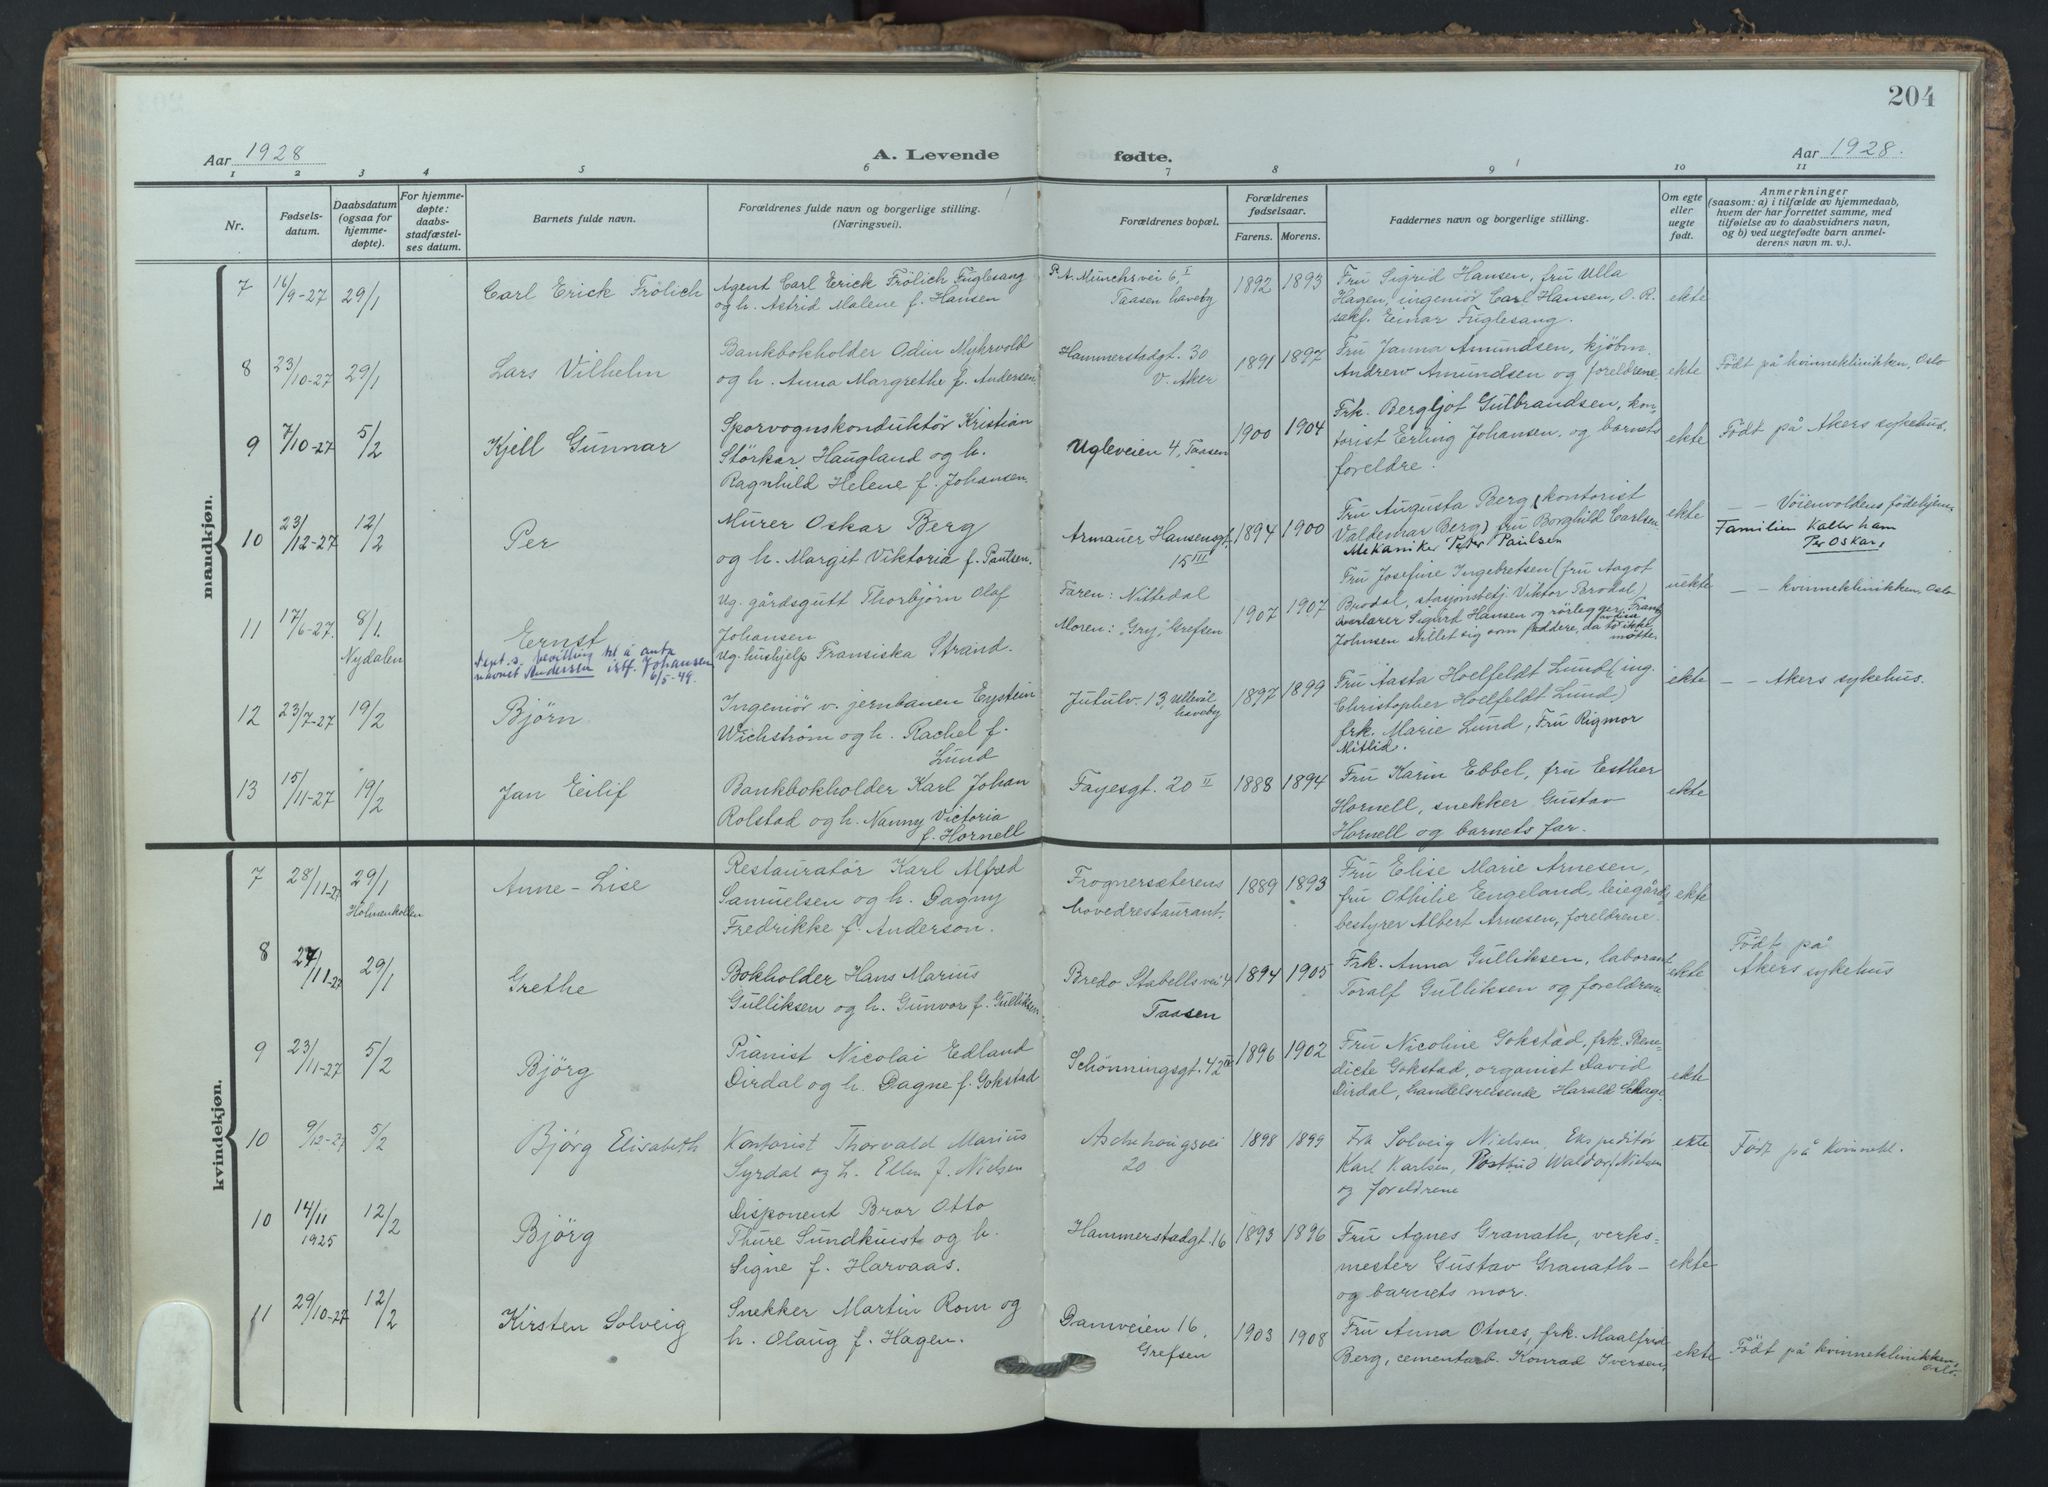 204
Aar 1928
A. Levende
fødte.
Aar 1928.
1 2 3 4 5 6 7 8 9 10 11
Nr.
Fødsels-
datum.
Daabsdatum
(ogsaa for
hjemme-
døpte).
For hjemme-
døpte:
daabs-
stadfæstel-
ses datum.
Barnets fulde navn.
Forældrenes fulde navn og borgerlige stilling.
(Næringsvei).
Forældrenes bopæl.
Forældrenes
fødselsaar.
Farens. Morens.
Faddernes navn og borgerlige stilling.
Om egte
eller
uegte
født.
Anmerkninger
(saasom: a) i tilfælde av hjemmedaab,
hvem der har forrettet samme, med
tilføielse av to daabsvidners navn,
og b) ved uegtefødte barn anmel-
derens navn m. v.).
mandkjøn.
7
16/9-27
29/1
Carl Erick Frölich
Agent Carl Erick Frölich Fuglesang
og h. Astrid Malene f. Hansen
P.A. Munchsvei 6 I
Taasen haveby
1892 1893
Fru Sigrid Hansen, fru Ulla
Hagen, ingeniør Carl Hansen, O.R.
sakf. Einar Fuglesang.
ekte
8
23/10-27
29/1
Lars Vilhelm
Bankbokholder Odin Myhrvold
og h. Anna Margrethe f. Andersen
Hammerstadgt. 30
V. Aker
1891 1897
Fru Janna Amundsen, kjøbm.
Andrew Amundsen og foreldrene
ekte
Født på kvinneklinikken, Oslo
9
7/10-27
5/2
Kjell Gunnar
Sporvognskonduktør Kristian
Størkar Haugland og h.
Ragnhild Helene f. Johansen.
Ugleveien 4, Taasen
1900 1904
Frk. Bergljot Gulbrandsen, kon-
torist Erling Johansen, og barnets
foreldre.
ekte
Født på Akers sykehus.
10
23/12-27
12/2
Per
Murer Oskar Berg
og h. Margit Viktoria f. Paulsen.
Armauer Hansensgt.
15 III
1894 1900
Fru Augusta Berg (kontorist
Valdemar Berg) fru Borghild Carlsen
Mekaniker Peder Paulsen
ekte
— — Vöienvoldens fødehjem
Familien Kaller ham
Per Oskar.
11
17/6-27.
8/1.
Nydalen
Ernst
Dept.s. bevilling til å anta
navnet Anderssen istf. Johansen
6/5-49.
Ug. gårdsgutt Thorbjørn Olaf
Johansen
Ug. hushjelp Fransiska Strand.
Faren: Nittedal
Moren: "Gry", Grefsen
1907 1907
Fru Josefine Ingebretsen (fru Aagot
Brodal, stasjonsbetj. Viktor Brodal)
overlærer Sigurd Hansen og rørlegger Frantz
Johnsen stillet sig som faddere, da to ikke
møtte.
uekte
— — kvinneklinikken, Oslo
12
23/7-27
19/2
Bjørn
Ingeniør v. jernbanen Eystein
Wichstrøm og h. Rachel f.
Lund
Jutulv. 13, Ullevål
haveby
1897 1899
Fru Aasta Hoelfeldt Lund (ing.
Christopher Hoelfeldt Lund)
frk. Marie Lund, Fru Rigmor
Mitlid.
ekte
— — Akers sykehus.
13
15/11-27
19/2
Jan Eilif
Bankbokholder Karl Johan
Rolstad og h. Nanny Victoria
f. Hornell
Fayesgt. 20 II
1888 1894
Fru Karin Ebbel, fru Esther
Hornell, snekker Gustav
Hornell og barnets far.
ekte
kvindekjøn.
7
28/11-27
29/1
Holmenkollen
Anne-Lise
Restauratør Karl Alfred
Samuelsen og h. Dagny
Fredrikke f. Anderson.
Frognersæterens
hovedrestaurant.
1889 1893
Fru Elise Marie Arnesen,
fru Othilie Engeland, leiegårds-
bestyrer Albert Arnesen, foreldrene.
ekte
8
27/11-27
29/1
Grethe
Bokholder Hans Marius
Gulliksen og h. Gunvor f. Gulliksen
Bredo Stabells vei 4
Taasen
1894 1905
Frk. Anna Gulliksen, laborant
Toralf Gulliksen og foreldrene
ekte
Født på
Akers sykehus
9
23/11-27
5/2
Bjørg
Pianist Nicolai Edland
Dirdal og h. Dagne f. Gokstad
Schönningsgt. 42 III
1896 1902
Fru Nicoline Gokstad, frk. Bene-
dicte Gokstad, organist David
Dirdal, handelsreisende Harald Schage
ekte
10
9/12-27
5/2
Bjørg Elisabeth
Kontorist Thorvald Marius
Syrdal og h. Ellen f. Nielsen
Aschehougsvei
20
1898 1899
Frk Solveig Nielsen, Ekspeditör
Karl Karlsen, Postbud Waldorf Nielsen
og foreldrene
ekte
Født på kvinnekl.
10
14/11
1925
12/2
Bjørg
Disponent Bror Otto
Thure Sundkuist og h.
Signe f. Harvaas.
Hammerstadgt. 16
1893 1896
Fru Agnes Granath, verks-
mester Gustav Granath-
og barnets mor.
ekte
11
29/10-27
12/2
Kirsten Solveig
Snekker Martin Rom og
h. Olaug f. Hagen.
Damveien 16,
Grefsen
1903 1908
Fru Anna Otnes, frk. Maalfrid
Berg, cementarb. Konrad Iversen,
ekte
Født på kvinneklinikken,
Oslo.